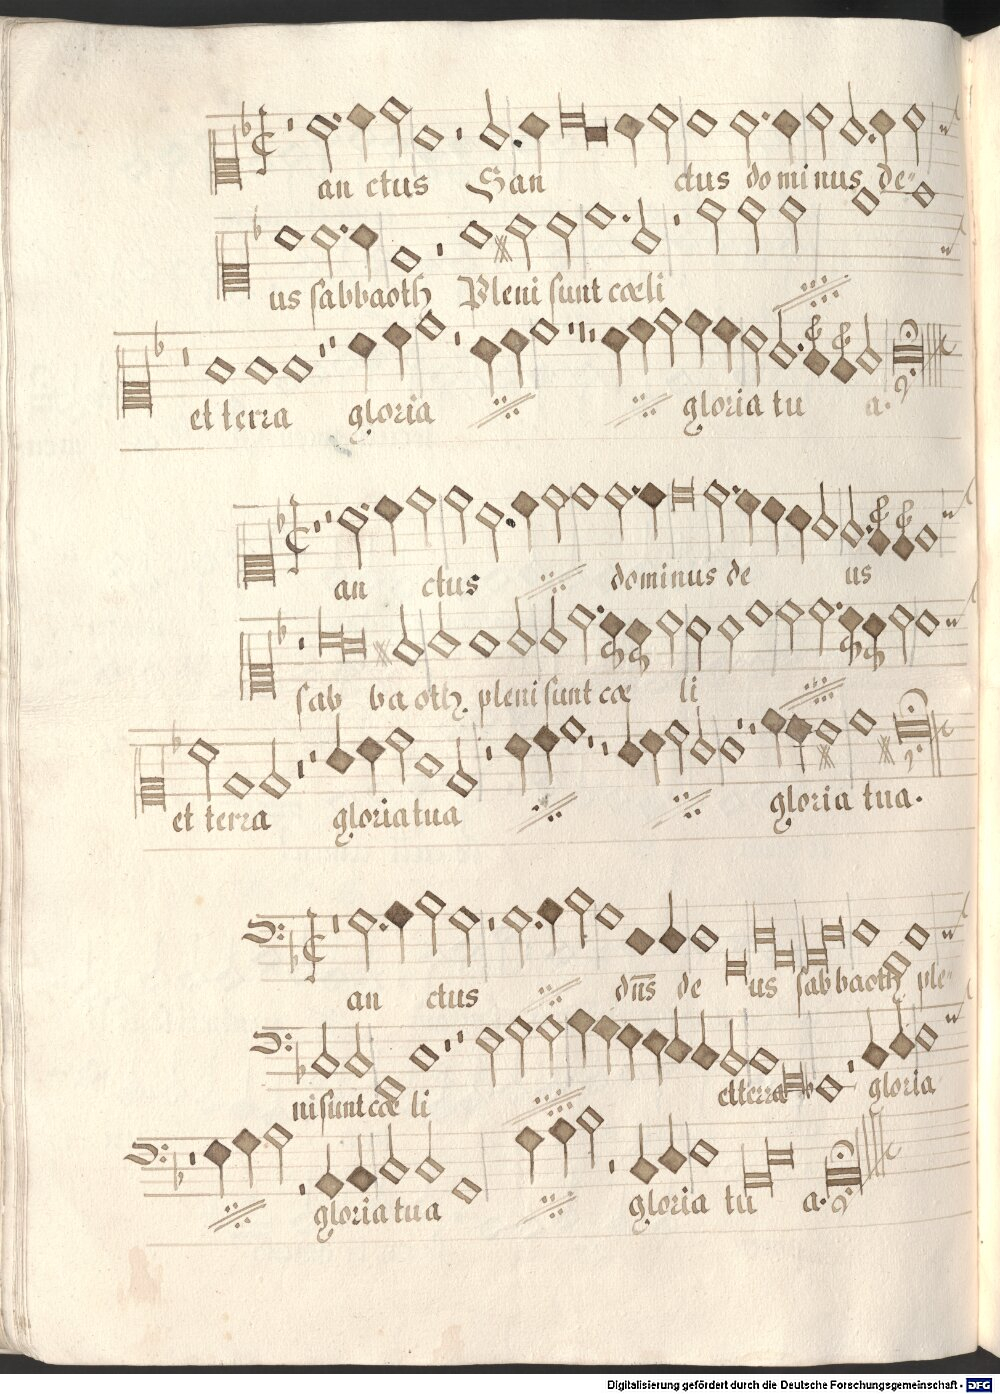 an ctus San ctus dominus de-
us sabbaoth Pleni sunt cœli
et terra gloria gloria tu a.
an ctus dominus de us
sab ba oth. pleni sunt cœ li
et terra gloria tua gloria tua.
an ctus dn̄s de us sabbaoth ple-
ni sunt cœ li et terra gloria
gloria tua gloria tu a.
Digitalisierung gefördert durch die Deutsche Forschungsgemeinschaft - DFG